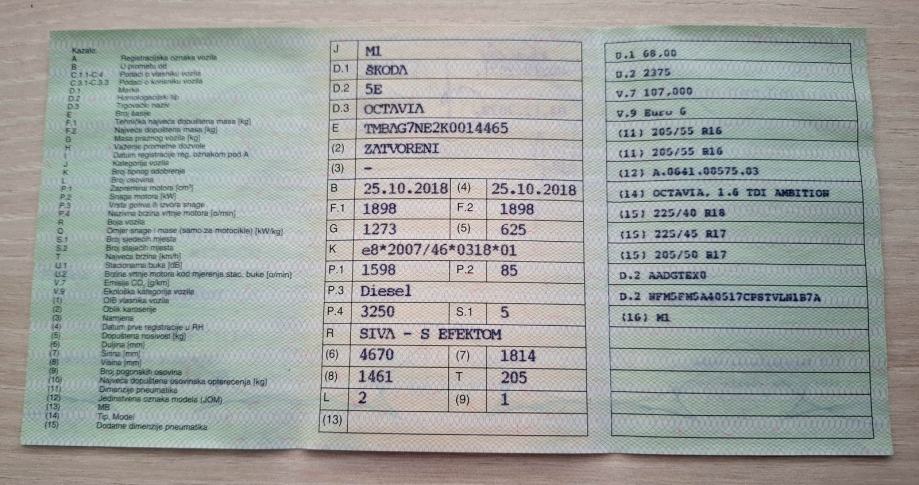 Kazalo:
A Registracijska oznaka vozila
B U prometu od
C.1.1-C.4 Podaci o vlasniku vozila
C.3.1-C.3.3 Podaci o korisniku vozila
D.1 Marka
D.2 Homologacijski tip
D.3 Trgovački naziv
E Broj šasije
F.1 Tehnička najveća dopuštena masa [kg]
F.2 Najveća dopuštena masa [kg]
G Masa praznog vozila [kg]
H Važenje prometne dozvole
I Datum registracije reg. oznakom pod A
J Kategorija vozila
K Broj tipnog odobrenja
L Broj osovina
P.1 Zapremina motora [cm³]
P.2 Snaga motora [kW]
P.3 Vrsta goriva ili izvora snage
P.4 Nazivna brzina vrtnje motora [o/min]
R Boja vozila
Q Omjer snage i mase (samo za motocikle) [kW/kg]
S.1 Broj sjedećih mjesta
S.2 Broj stajaćih mjesta
T Najveća brzina [km/h]
U.1 Stacionarna buka [dB]
U.2 Brzina vrtnje motora kod mjerenja stac. buke [o/min]
V.7 Emisije CO₂ [g/km]
V.9 Ekološka kategorija vozila
(1) OIB vlasnika vozila
(2) Oblik karoserije
(3) Namjena
(4) Datum prve registracije u RH
(5) Dopuštena nosivost [kg]
(6) Duljina [mm]
(7) Širina [mm]
(8) Visina [mm]
(9) Broj pogonskih osovina
(10) Najveća dopuštena osovinska opterećenja [kg]
(11) Dimenzije pneumatika
(12) Jedinstvena oznaka modela (JOM)
(13) MB
(14) Tip, Model
(15) Dodatne dimenzije pneumatika
J M1
D.1 ŠKODA
D.2 5E
D.3 OCTAVIA
E TMBAG7NE2K0014465
(2) ZATVORENI
(3) –
B 25.10.2018 (4) 25.10.2018
F.1 1898 F.2 1898
G 1273 (5) 625
K e8*2007/46*0318*01
P.1 1598 P.2 85
P.3 Diesel
P.4 3250 S.1 5
R SIVA - S EFEKTOM
(6) 4670 (7) 1814
(8) 1461 T 205
L 2 (9) 1
(13)
U.1 68.00
U.2 2375
V.7 107,000
V.9 Euro 6
(11) 205/55 R16
(11) 205/55 R16
(12) A.0641.00575.03
(14) OCTAVIA, 1.6 TDI AMBITION
(15) 225/40 R18
(15) 225/45 R17
(15) 205/50 R17
D.2 AADGTEX0
D.2 NFM5FM5A40517CPSTVLN1B7A
(16) M1